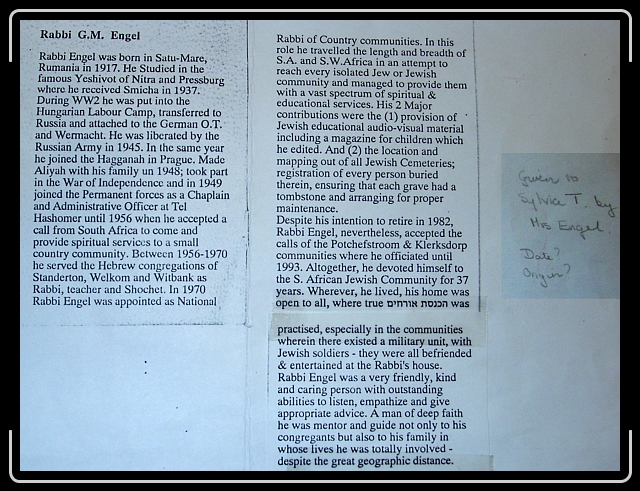 Rabbi G.M. Engel
Rabbi Engel was born in Satu-Mare,
Rumania in 1917. He Studied in the
famous Yeshivot of Nitra and Pressburg
where he received Smicha in 1937.
During WW2 he was put into the
Hungarian Labour Camp, transferred to
Russia and attached to the German O.T.
and Wermacht. He was liberated by the
Russian Army in 1945. In the same year
he joined the Hagganah in Prague. Made
Aliyah with his family un 1948; took part
in the War of Independence and in 1949
joined the Permanent forces as a Chaplain
and Administrative Officer at Tel
Hashomer until 1956 when he accepted a
call from South Africa to come and
provide spiritual services to a small
country community. Between 1956-1970
he served the Hebrew congregations of
Standerton, Welkom and Witbank as
Rabbi, teacher and Shochet. In 1970
Rabbi Engel was appointed as National
Rabbi of Country communities. In this
role he travelled the length and breadth of
S.A. and S.W.Africa in an attempt to
reach every isolated Jew or Jewish
community and managed to provide them
with a vast spectrum of spiritual &
educational services. His 2 Major
contributions were the (1) provision of
Jewish educational audio-visual material
including a magazine for children which
he edited. And (2) the location and
mapping out of all Jewish Cemeteries;
registration of every person buried
therein, ensuring that each grave had a
tombstone and arranging for proper
maintenance.
Despite his intention to retire in 1982,
Rabbi Engel, nevertheless, accepted the
calls of the Potchefstroom & Klerksdorp
communities where he officiated until
1993. Altogether, he devoted himself to
the S. African Jewish Community for 37
years. Wherever, he lived, his home was
open to all, where true הכנסת אורחים was
practised, especially in the communities
wherein there existed a military unit, with
Jewish soldiers - they were all befriended
& entertained at the Rabbi's house.
Rabbi Engel was a very friendly, kind
and caring person with outstanding
abilities to listen, empathize and give
appropriate advice. A man of deep faith
he was mentor and guide not only to his
congregants but also to his family in
whose lives he was totally involved -
despite the great geographic distance.
Given to
Sylvia T. by
Mrs Engel.
Date?
Origin?